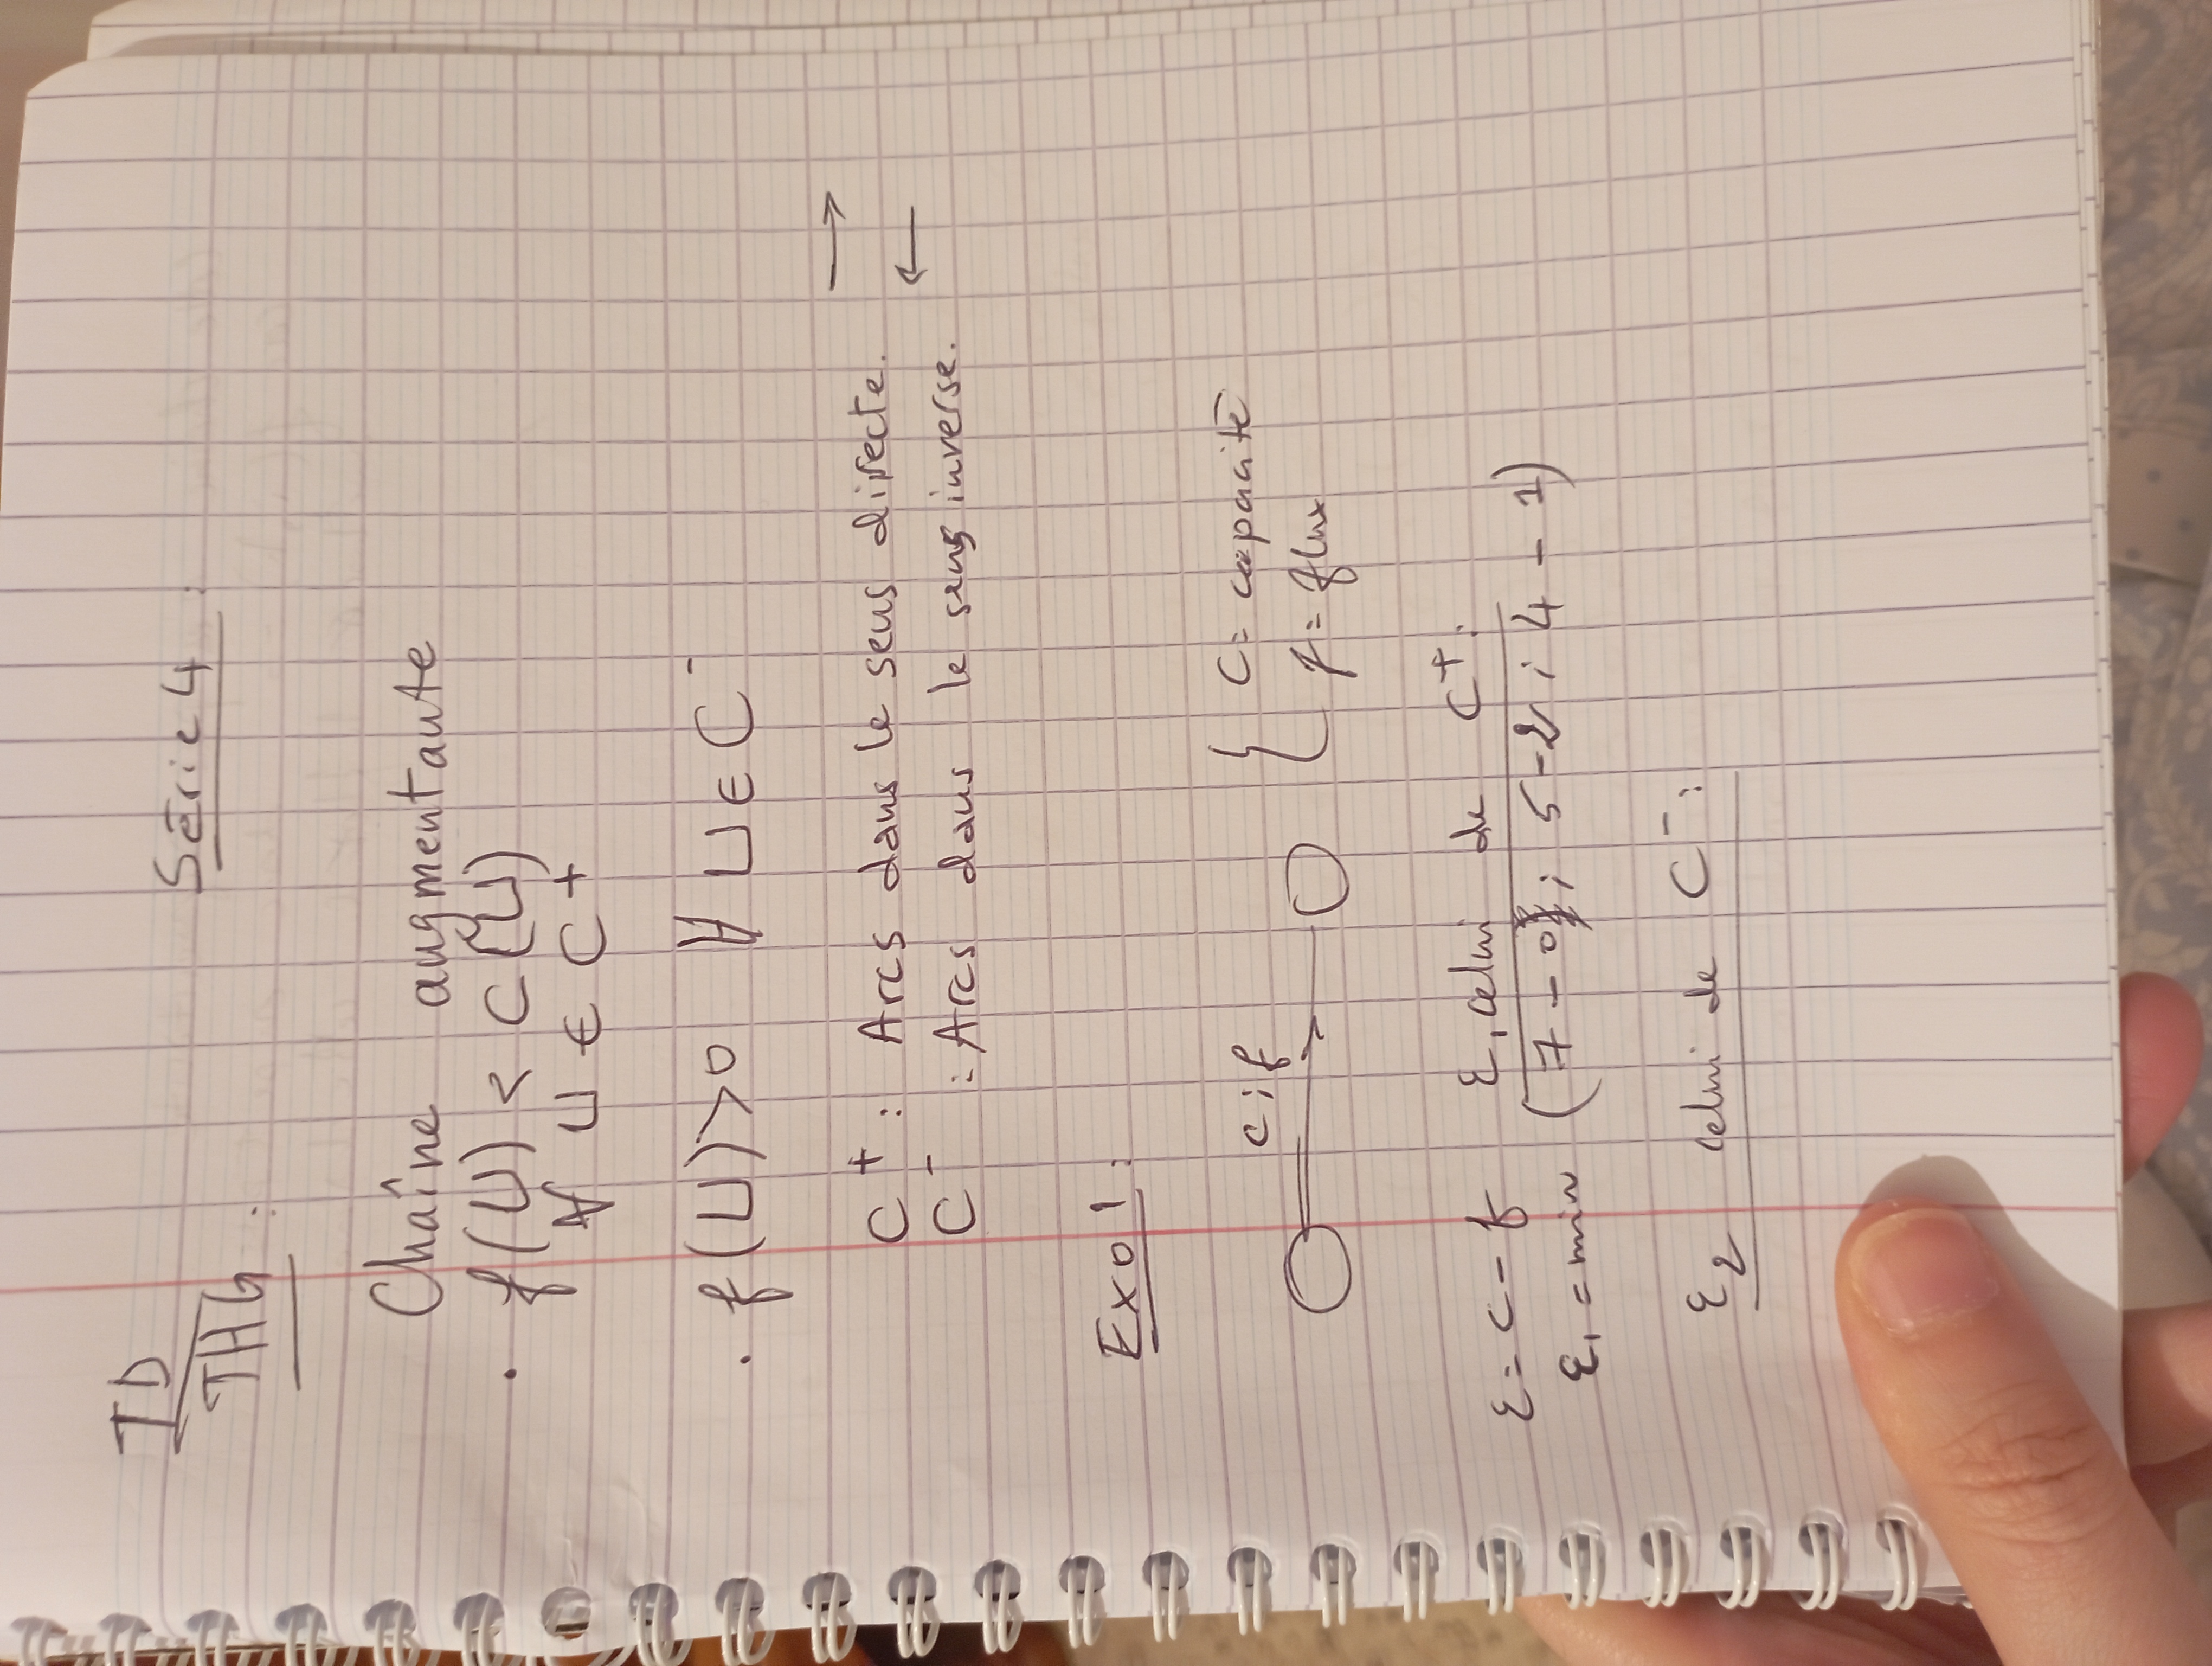 TD
THG :
Série 4 :
Chaîne augmentante
. f(U) < C(U)
∀ U ∈ C+
. f(U) > 0 ∀ U ∈ C-
C+ : Arcs dans le sens directe. →
C- : Arcs dans le sens inverse. ←
Exo 1 :
c ; f
{ C = capacité
f = flux
ε = c - f ε1 celui de C+ :
ε1 = min (7 - 0 ; 5 - 2 ; 4 - 1)
ε2 celui de C- :